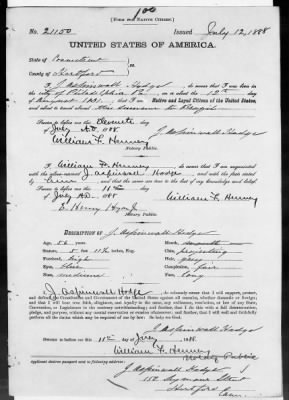 100
[FORM FOR NATIVE CITIZEN.]
No. 21150 Issued July 12, 1888
UNITED STATES OF AMERICA.
State of Connecticut
County of Hartford
I, J. Aspinwall Hodge, do swear that I was born in the
City of Philadelphia on or about the 12th day
of August 1831; that I am a Native and Loyal Citizen of the United States,
and about to travel abroad
Sworn to before me this Eleventh
day of July A.D. 1888
J. Aspinwall Hodge
William F. Henney
Notary Public.
I, William F. Henney, do swear that I am acquainted
with the above-named J. Aspinwall Hodge, and with the facts stated
and that the same are true to the best of my knowledge and belief.
Sworn to before me this 11th
day of July A.D. 1888
William F. Henney
E. Henry Hyde Jr
Notary Public.
DESCRIPTION OF J. Aspinwall Hodge
Age, 56 years
Stature, 5 feet 11 1/2 inches, Eng.
Forehead, high
Eyes, blue
Nose, medium
Mouth,
Chin, projecting
Hair, grey
Complexion, fair
Face, long
I, J. Aspinwall Hodge, do solemnly swear that I will support, protect,
and defend the Constitution and Government of the United States against all enemies, whether domestic or foreign; and
that I will bear true faith, allegiance, and loyalty to the same, any ordinance, resolution, or law of any State,
Convention, or Legislature to the contrary notwithstanding; and further, that I do this with a full determination,
pledge, and purpose, without any mental reservation or evasion whatsoever; and further, that I will well and faithfully
perform all the duties which may be required of me by law: So help me God.
J. Aspinwall Hodge
Sworn to before me this 11th day of July, 1888.
William F. Henney
Notary Public
Applicant desires passport sent to following address:
J. Aspinwall Hodge
Seymour Street
Hartford
Conn.